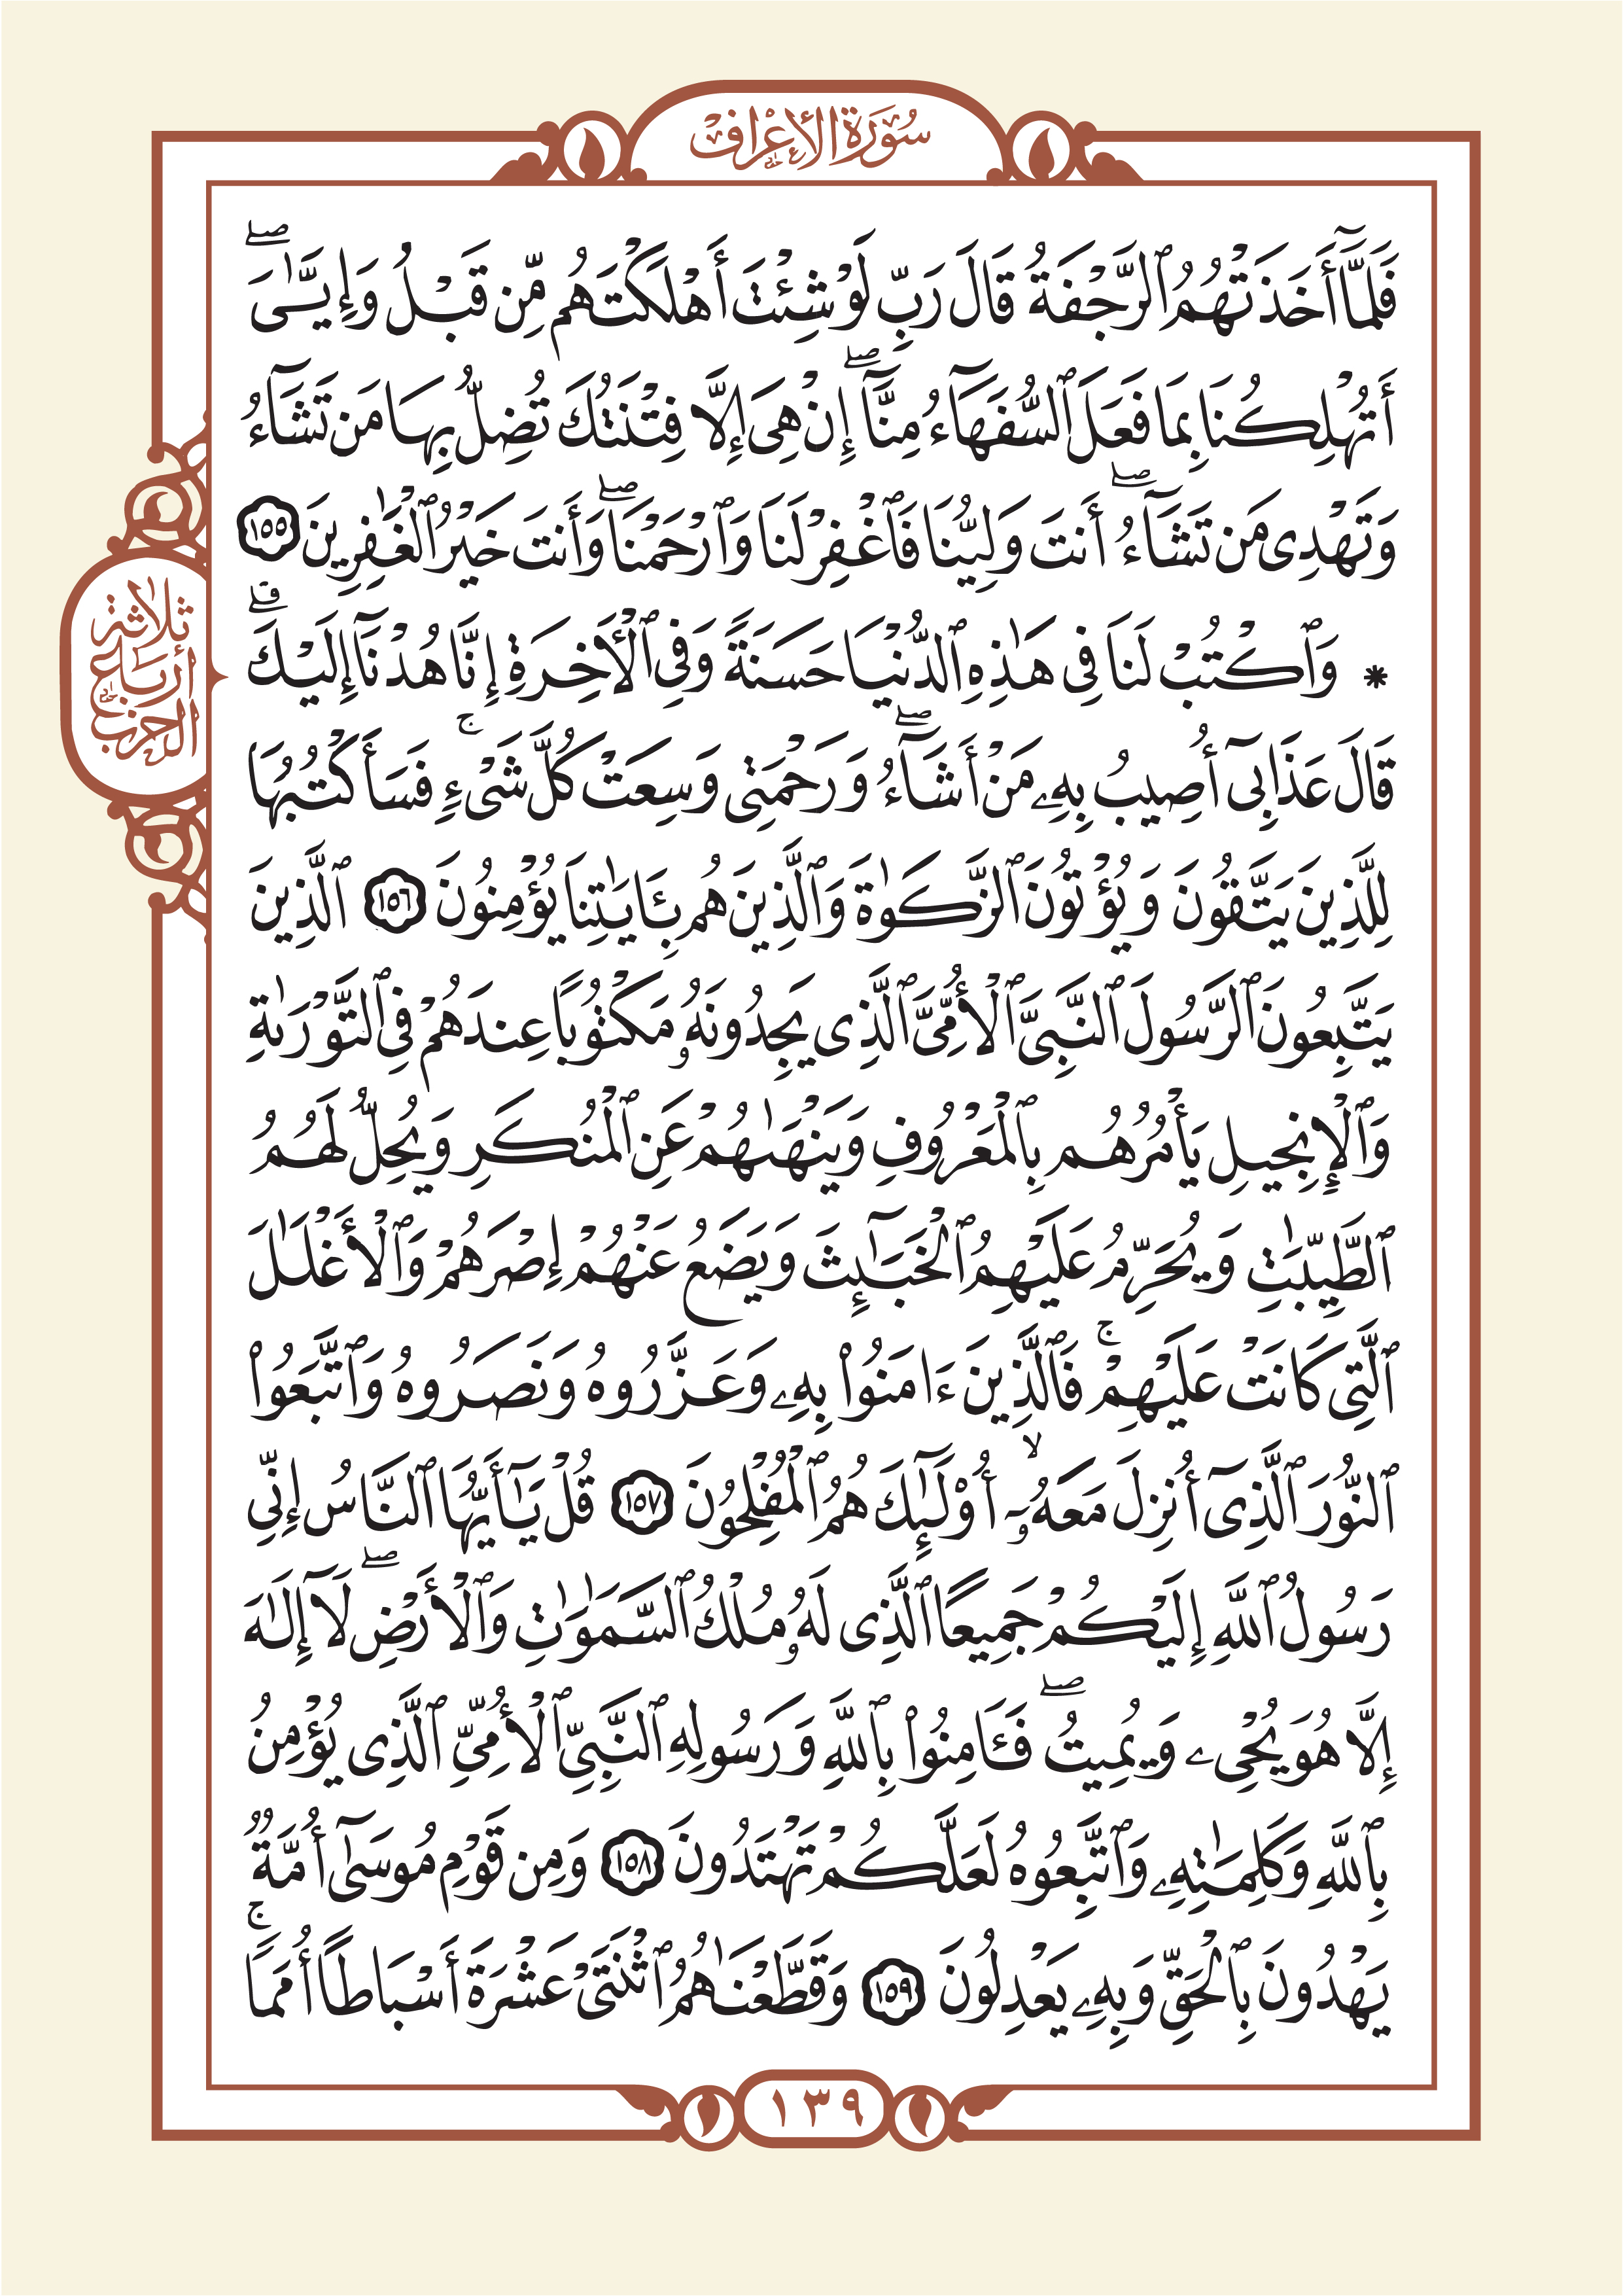 سُورَةُ الأَعْرَافِ
فَلَمَّآ أَخَذَتْهُمُ ٱلرَّجْفَةُ قَالَ رَبِّ لَوْ شِئْتَ أَهْلَكْتَهُم مِّن قَبْلُ وَإِيَّـٰىَ ۖ
أَتُهْلِكُنَا بِمَا فَعَلَ ٱلسُّفَهَآءُ مِنَّآ ۖ إِنْ هِىَ إِلَّا فِتْنَتُكَ تُضِلُّ بِهَا مَن تَشَآءُ
وَتَهْدِى مَن تَشَآءُ ۖ أَنتَ وَلِيُّنَا فَٱغْفِرْ لَنَا وَٱرْحَمْنَا ۖ وَأَنتَ خَيْرُ ٱلْغَـٰفِرِينَ ١٥٥
* وَٱكْتُبْ لَنَا فِى هَـٰذِهِ ٱلدُّنْيَا حَسَنَةً وَفِى ٱلْأَخِرَةِ إِنَّا هُدْنَآ إِلَيْكَ ۚ
قَالَ عَذَابِىٓ أُصِيبُ بِهِۦ مَنْ أَشَآءُ ۖ وَرَحْمَتِى وَسِعَتْ كُلَّ شَىْءٍ ۚ فَسَأَكْتُبُهَا
لِلَّذِينَ يَتَّقُونَ وَيُؤْتُونَ ٱلزَّكَوٰةَ وَٱلَّذِينَ هُم بِـَٔايَـٰتِنَا يُؤْمِنُونَ ١٥٦ ٱلَّذِينَ
يَتَّبِعُونَ ٱلرَّسُولَ ٱلنَّبِىَّ ٱلْأُمِّىَّ ٱلَّذِى يَجِدُونَهُۥ مَكْتُوبًا عِندَهُمْ فِى ٱلتَّوْرَىٰةِ
وَٱلْإِنجِيلِ يَأْمُرُهُم بِٱلْمَعْرُوفِ وَيَنْهَىٰهُمْ عَنِ ٱلْمُنكَرِ وَيُحِلُّ لَهُمُ
ٱلطَّيِّبَـٰتِ وَيُحَرِّمُ عَلَيْهِمُ ٱلْخَبَـٰٓئِثَ وَيَضَعُ عَنْهُمْ إِصْرَهُمْ وَٱلْأَغْلَـٰلَ
ٱلَّتِى كَانَتْ عَلَيْهِمْ ۚ فَٱلَّذِينَ ءَامَنُوا۟ بِهِۦ وَعَزَّرُوهُ وَنَصَرُوهُ وَٱتَّبَعُوا۟
ٱلنُّورَ ٱلَّذِىٓ أُنزِلَ مَعَهُۥٓ ۙ أُو۟لَـٰٓئِكَ هُمُ ٱلْمُفْلِحُونَ ١٥٧ قُلْ يَـٰٓأَيُّهَا ٱلنَّاسُ إِنِّى
رَسُولُ ٱللَّهِ إِلَيْكُمْ جَمِيعًا ٱلَّذِى لَهُۥ مُلْكُ ٱلسَّمَـٰوَٰتِ وَٱلْأَرْضِ ۖ لَآ إِلَـٰهَ
إِلَّا هُوَ يُحْىِۦ وَيُمِيتُ ۖ فَـَٔامِنُوا۟ بِٱللَّهِ وَرَسُولِهِ ٱلنَّبِىِّ ٱلْأُمِّىِّ ٱلَّذِى يُؤْمِنُ
بِٱللَّهِ وَكَلِمَـٰتِهِۦ وَٱتَّبِعُوهُ لَعَلَّكُمْ تَهْتَدُونَ ١٥٨ وَمِن قَوْمِ مُوسَىٰٓ أُمَّةٌ
يَهْدُونَ بِٱلْحَقِّ وَبِهِۦ يَعْدِلُونَ ١٥٩ وَقَطَّعْنَـٰهُمُ ٱثْنَتَىْ عَشْرَةَ أَسْبَاطًا أُمَمًا ۚ
ثلاثة
أرباع
الحزب
١٣٩